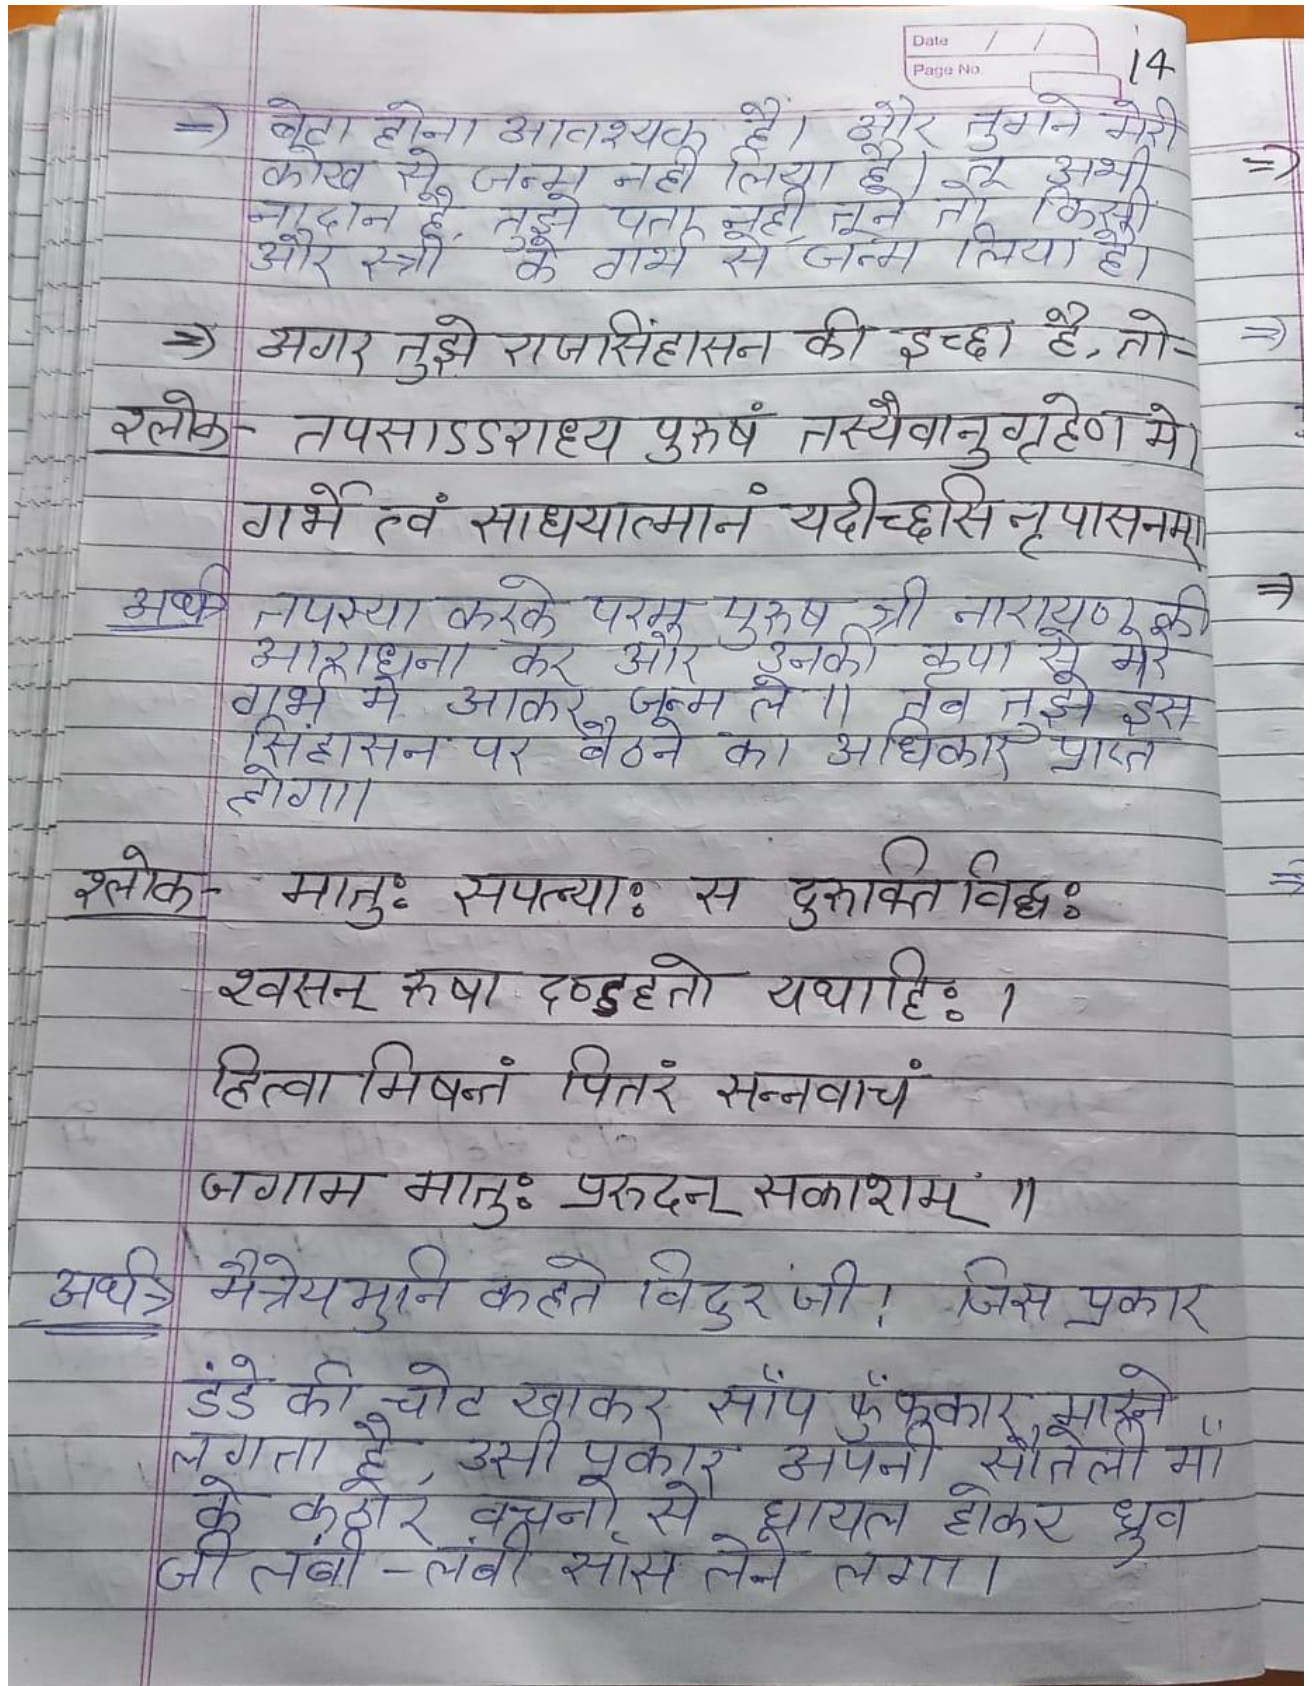 Date / /
Page No.
14
⇒ बेटा होना आवश्यक है। और तुमने मेरी
कोख से जन्म नही लिया है। तू अभी
नादान है, तुझे पता नही तूने तो किसी
और स्त्री के गर्भ से जन्म लिया है।
⇒ अगर तुझे राजसिंहासन की इच्छा है, तो-
श्लोक- तपसाऽऽराध्य पुरुषं तस्यैवानुगृहेण मे।
गर्भे त्वं साधयात्मानं यदीच्छसि नृपासनम्॥
अर्थ→ तपस्या करके परम पुरुष श्री नारायण की
आराधना कर और उनकी कृपा से मेरे
गर्भ मे आकर जन्म ले॥ तब तुझे इस
सिंहासन पर बैठने का अधिकार प्राप्त
होगा।
श्लोक- मातुः सपत्न्याः स दुरुक्तिविद्धः
श्वसन् रुषा दण्डहतो यथाहिः।
हित्वा मिषन्तं पितरं सन्नवाचं
जगाम मातुः प्ररुदन् सकाशम् ॥
अर्थ→ मैत्रेयमुनि कहते विदुर जी! जिस प्रकार
डंडे की चोट खाकर साँप फुँफकार मारने
लगता है, उसी प्रकार अपनी सौतेली माँ
के कठोर वचनो से घायल होकर ध्रुव
जी लंबी-लंबी साँस लेने लगा।
⇒
⇒
⇒
⇒